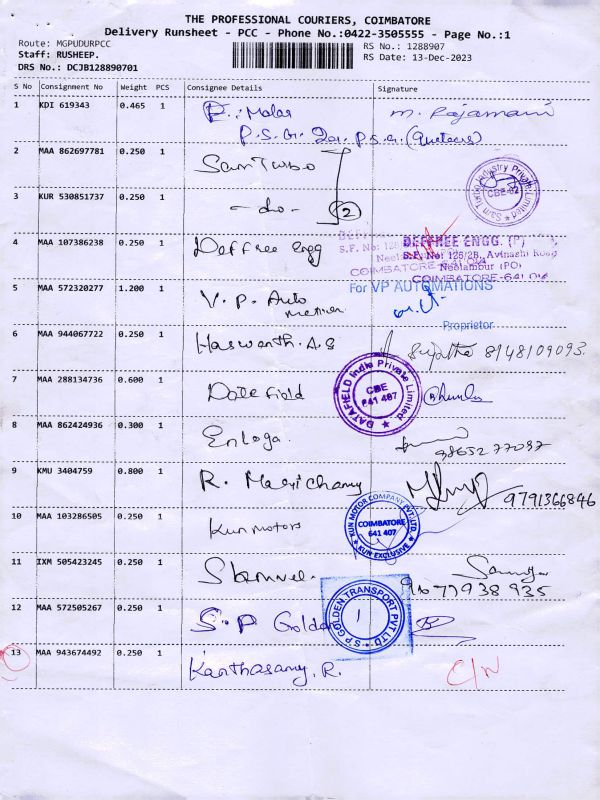 THE PROFESSIONAL COURIERS, COIMBATORE
Delivery Runsheet - PCC - Phone No.:0422-3505555 - Page No.:1
Route: MGPUDURPCC
RS No.: 1288907
Staff: RUSHEEP.
RS Date: 13-Dec-2023
DRS No.: DCJB128890701
S No Consignment No Weight PCS Consignee Details Signature
1 KDI 619343 0.465 1 P. Malar M. Rajamani
P.S.G.
2 MAA 862697781 0.250 1 Sam Turbo
Sam Turbo Industry Private Limited
CBE-62
3 KUR 530851737 0.250 1 -do- 2
4 MAA 107386238 0.250 1 Deffree Engg
DEFFREE ENGG. (P)
S.F. No: 126/2B, Avinashi Road
Neelambur (PO),
COIMBATORE-641 014
5 MAA 572320277 1.200 1 V. P. Auto
For VP AUTOMATIONS
Proprietor
6 MAA 944067722 0.250 1 Haswanth. A.S Sujatha 8148109093
7 MAA 288134736 0.600 1 Datefield
DATAFIELD India Private Limited
CBE
641 407
8 MAA 862424936 0.300 1 Enloga. 9865277097
9 KMU 3404759 0.800 1 R. Marichamy 9791366846
10 MAA 103286505 0.250 1 Kun motors
KUN MOTOR COMPANY PVT. LTD.
COIMBATORE
641 407
KUN EXCLUSIVE
11 IXM 505423245 0.250 1
12 MAA 572505267 0.250 1 S.P Golden
S P GOLDEN TRANSPORT PVT LTD
13 MAA 943674492 0.250 1 Kanthasamy. R. C/N